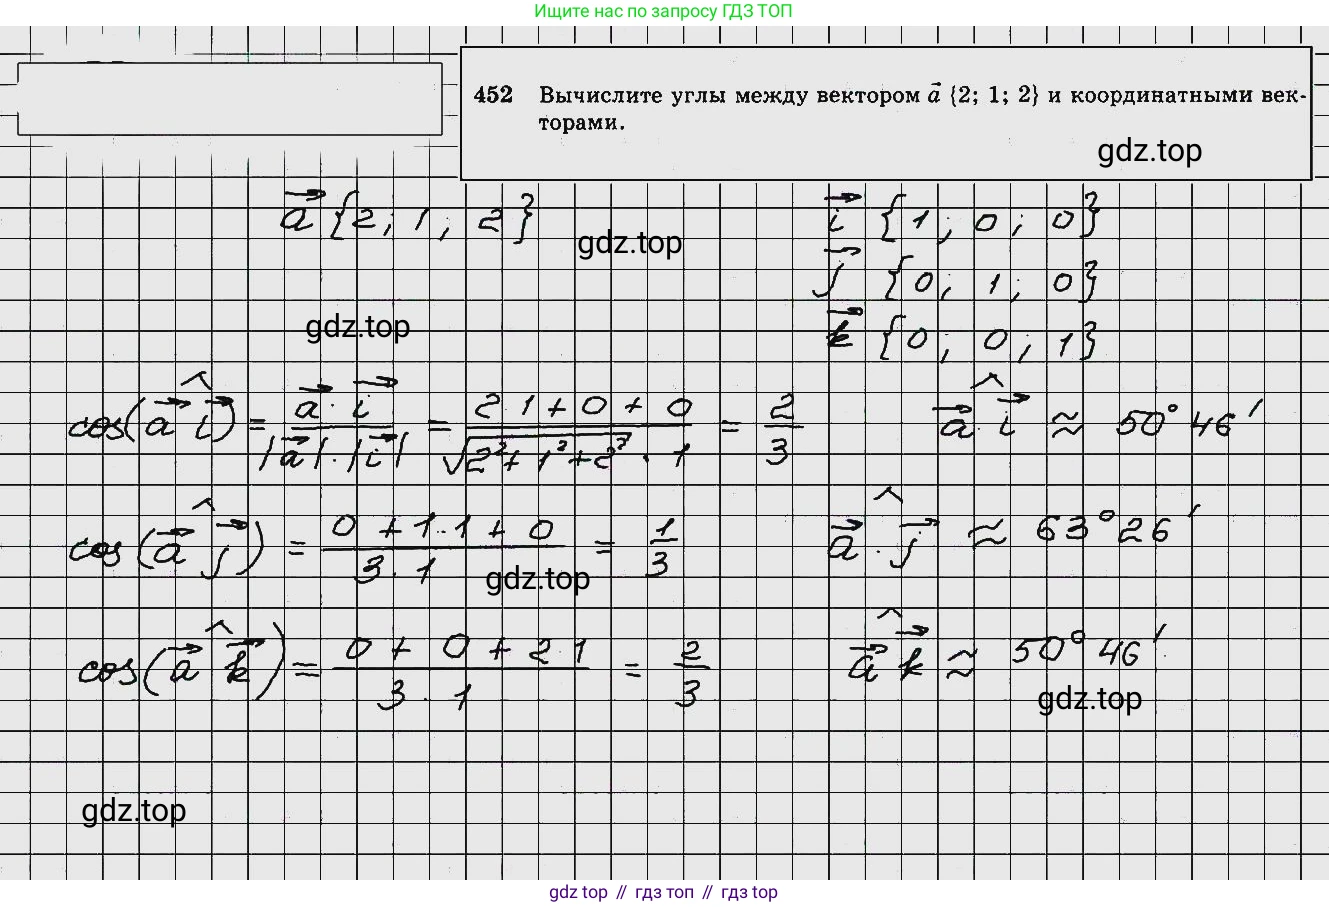 Ищите нас по запросу ГДЗ ТОП
452 Вычислите углы между вектором a⃗ {2; 1; 2} и координатными век-
торами.
gdz.top
a⃗ {2; 1; 2}
i⃗ {1; 0; 0}
gdz.top
j⃗ {0; 1; 0}
gdz.top
k⃗ {0; 0; 1}
cos(a⃗ ^ i⃗) = a⃗ · i⃗ / |a⃗| · |i⃗| = 2·1 + 0 + 0 / √(2² + 1² + 2²) · 1 = 2/3 a⃗ ^ · i⃗ ≈ 50°46'
cos(a⃗ ^ j⃗) = 0 + 1·1 + 0 / 3·1 = 1/3 a⃗ ^ · j⃗ ≈ 63°26'
gdz.top
cos(a⃗ ^ k⃗) = 0 + 0 + 2·1 / 3·1 = 2/3 a⃗ ^ k⃗ ≈ 50°46'
gdz.top
gdz.top
gdz top // гдз топ // гдз top